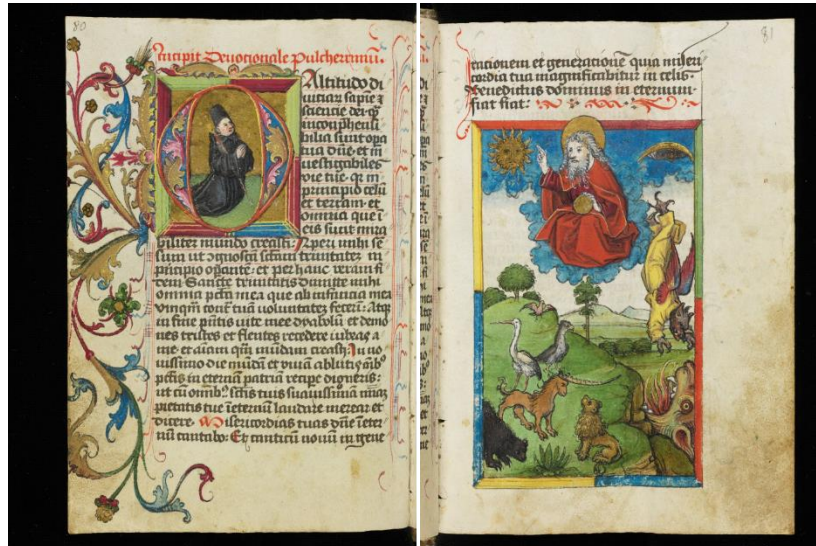 80
Incipit Devotionale Pulcherrimū.
Altitudo di
uitiaȝ sapīe ⁊
sciencie dei q̄
incōprehensi
bilia sunt opa
tua dn̄e et in
uestigabiles
vie tue q̄ in
principio celū
et terram et
omnia que ī
eis sunt mira
biliter mundo creasti Aperi mihi sē
sum ut ognoscā scām trinitateȝ in
pricipio et per hanc veram fi
dem Sancte trinitatis dimitte mihi
omnia pctā mea que ab infancia mea
vnqm̄ cont tuā voluntateȝ feceri Atqȝ
in fine pn̄tis vite mee dyabolū et demo
nes tristes et flentes recedere iubeas a
me et aīam qm̄ mūdam creasti In no
uissimo die mūdā et viuā ablutā
pctis in eternā patriā recipe digneris
ut cū omībȝ scīs tuis suauissimā
pietatis tue īeternū laudare merear et
dicere Misericordias tuas dn̄e īeter
nū cantabo Et canticū nouū in gene
81
racionem et generationē quia miseri
cordia tua magnificabitur in celis
Benedictus dominus in eternum
fiat fiat